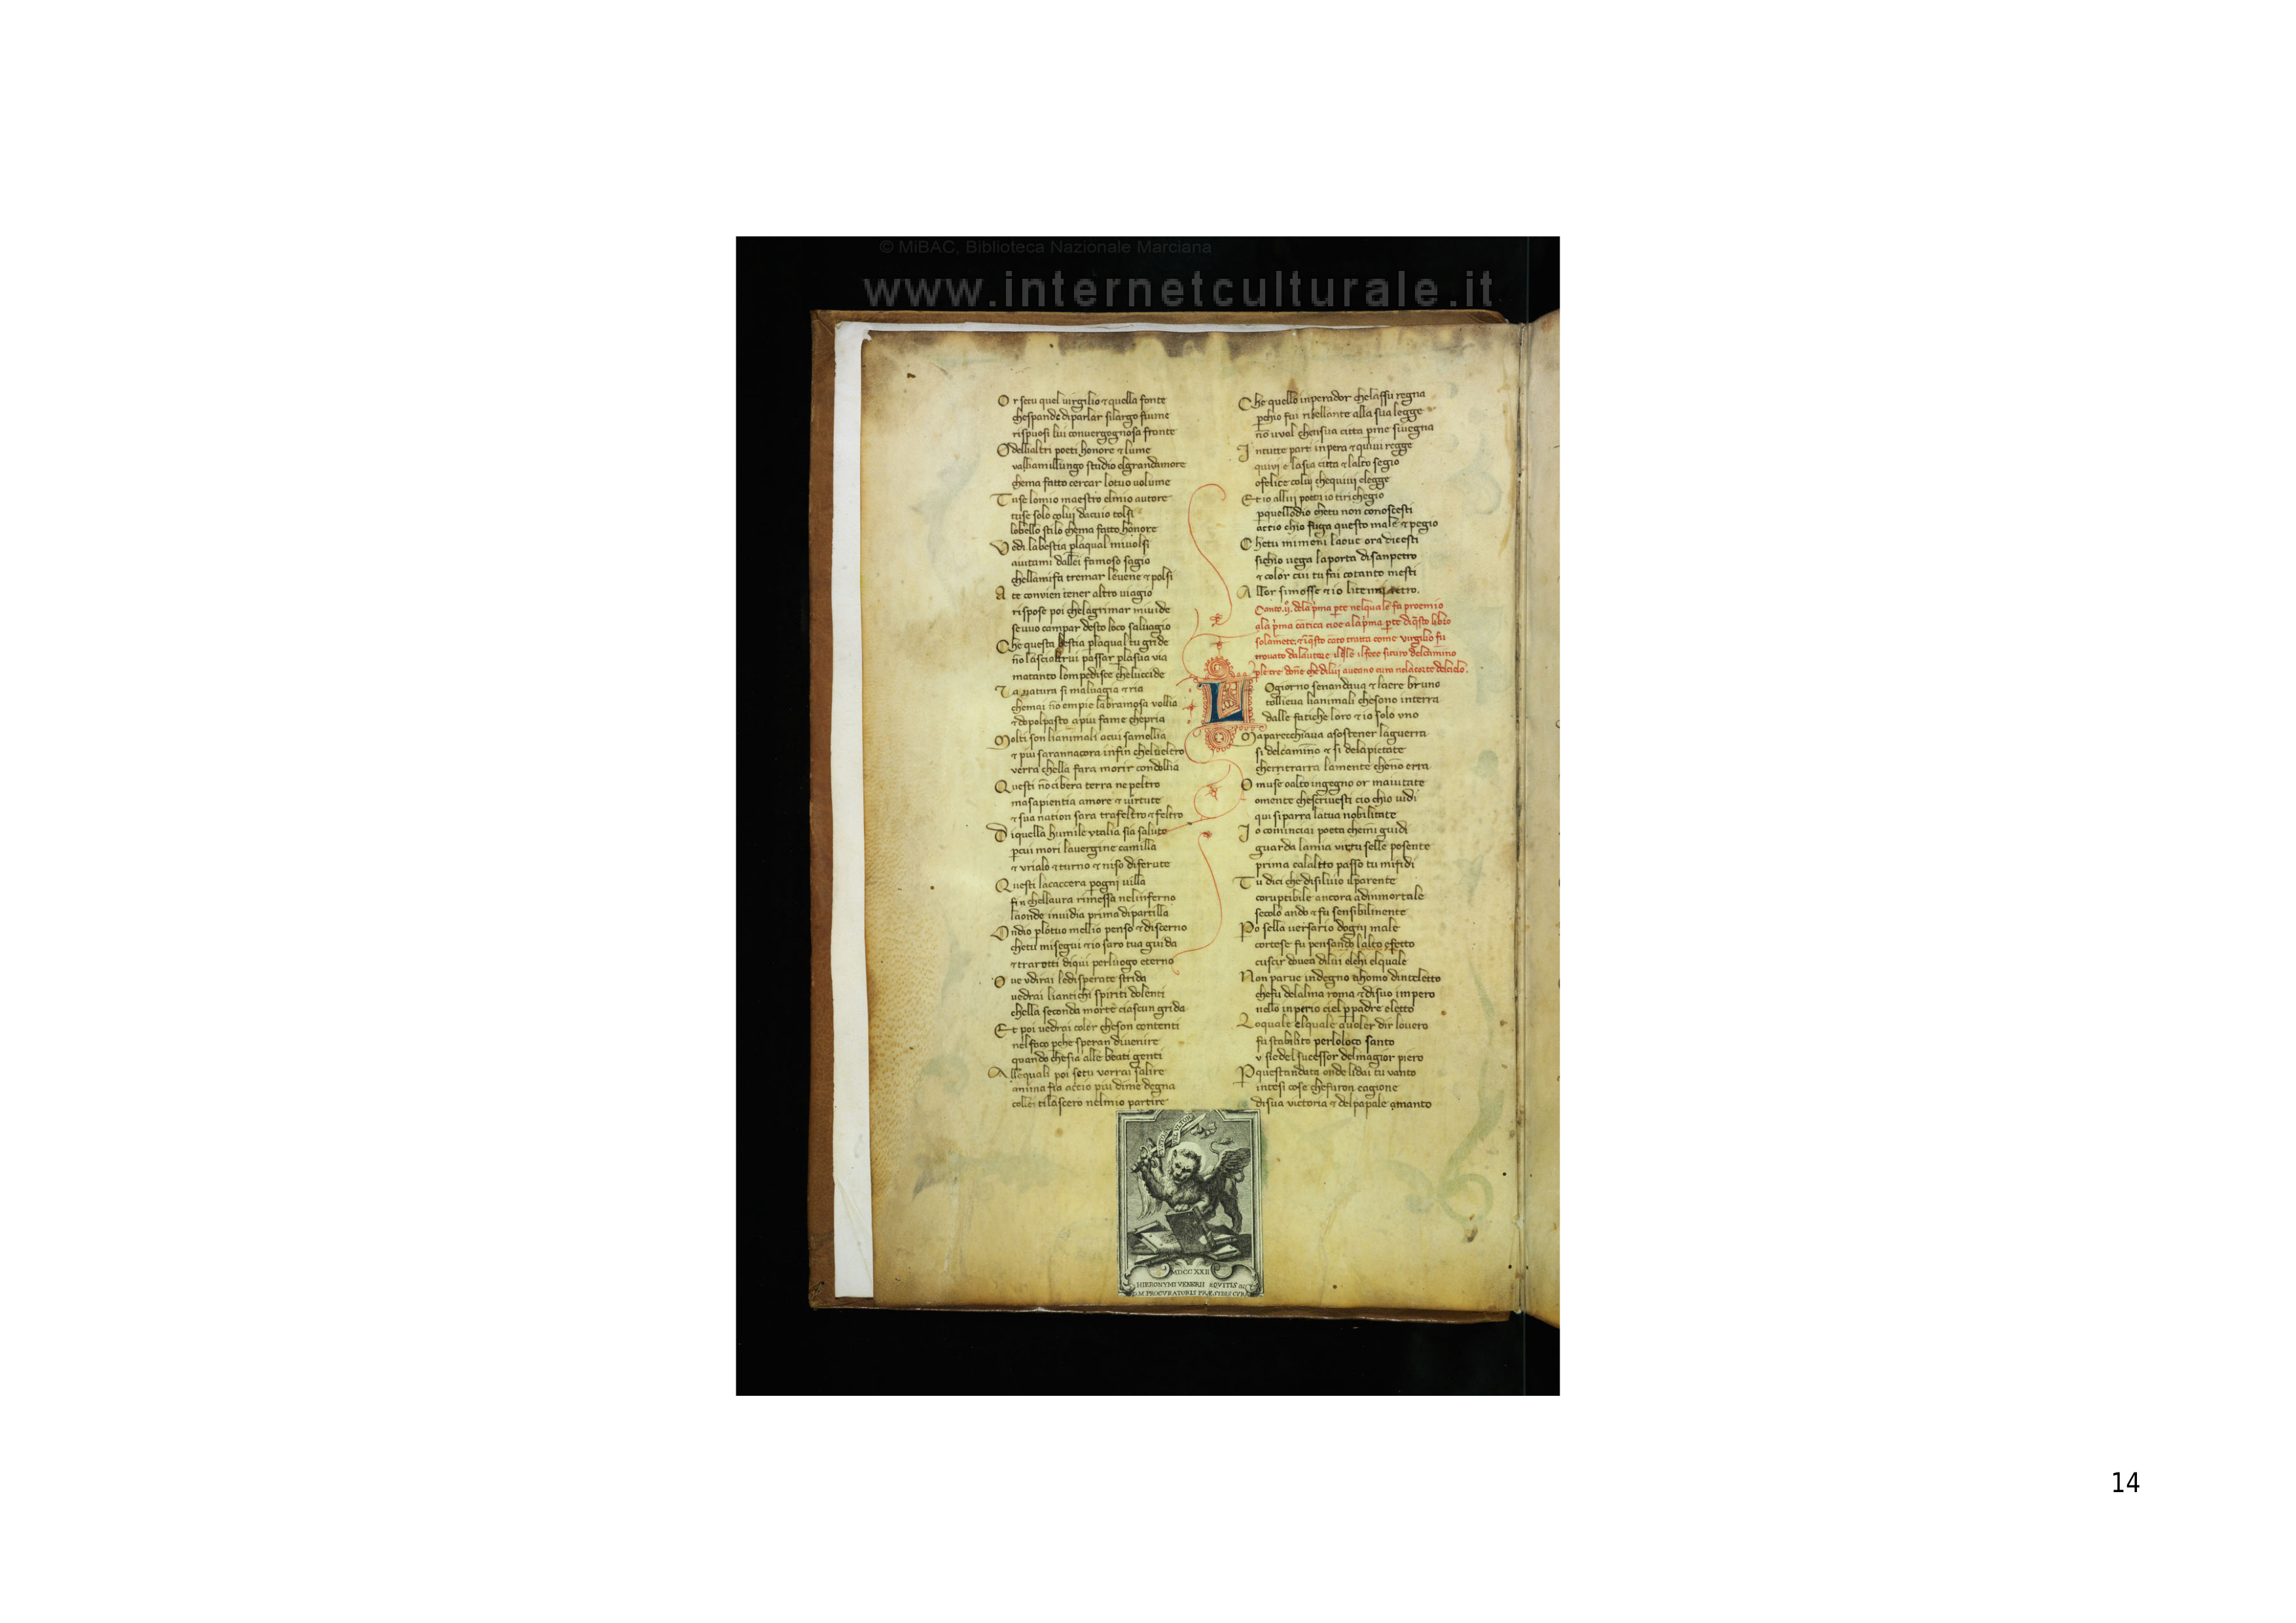 © MiBAC, Biblioteca Nazionale Marciana
www.internetculturale.it
Or setu quel uirgilio ⁊ quella fonte
chespande diparlar silargo fiume
rispuosi lui conuergognosa fronte
O dellialtri poeti honore ⁊ lume
valliamillungo studio elgrandamore
chema fatto cercar lotuo uolume
Tuse lomio maestro elmio autore
tuse solo colui dacuio tolsi
lobello stilo chema fatto honore
Vedi labestia plaqual miuolsi
aiutami dallei famoso sagio
chellamifa tremar leuene ⁊ polsi
A te conuien tener altro uiagio
rispose poi chelagrimar miuide
seuuo campar desto loco saluagio
Che questa bestia plaqual tu gride
nō lascialtrui passar plasua via
matanto lompedisce cheluccide
Ta natura si maluagia ⁊ ria
chemai nō empie labramosa vollia
⁊ dopolpasto apiu fame chepria
Molti son lianimali acui samollia
⁊ piu sarannacora infin cheluelcro
verra chella fara morir condollia
Questi nō cibera terra ne peltro
masapientia amore ⁊ uirtute
⁊ sua nation sara trafeltro ⁊ feltro
Di quella humile ytalia fia salute
pcui mori lauergine camilla
⁊ vrialo ⁊ turno ⁊ niso diferute
Questi lacaccera pogni uilla
fin chellaura rimessa nelinferno
laonde inuidia prima dipartilla
Ondio plotuo mellio penso ⁊ discerno
chetu misegui ⁊ io saro tua guida
⁊ trarotti diqui perluogo eterno
Oue vdirai ledisperate strida
uedrai liantichi spiriti dolenti
chella seconda morte ciascun grida
Et poi uedrai color cheson contenti
nelfoco pche speran diuenire
quando chesia alle beati genti
Allequali poi setu vorrai salire
anima fia accio piu dime degna
collei tilascero nelmio partire
Che quello inperador chelassu regna
pchio fui ribellante alla sua legge
nō uuol chensua citta pme siuegna
Intutte parti inpera ⁊ quiui regge
quiui e lasua citta ⁊ lalto segio
o felice colui chequiui elegge
Et io allui poeta io tirichegio
pquellodio chetu non conoscesti
accio chio fuga questo male ⁊ pegio
Chetu mimeni laoue ora dicesti
sichio uega laporta disanpetro
⁊ color cui tu fai cotanto mesti
Allor simosse ⁊ io litenni retro.
Canto .ij. dela pma pte nelquale fa proemio
ala pma cātica cioe ala pma pte diqsto libro
solamēte, ⁊ īqsto cāto tratta come virgilio fu
trouato dalautore ilqle ilfece sicuro delcamino
ple tre done che dilui aueano cura nelacorte delcielo.
Logiorno senandaua ⁊ laere bruno
tolleua lianimali chesono interra
dalle fatiche loro ⁊ io solo vno
Maparecchiaua asostener laguerra
si delcamino ⁊ si delapietate
cheritrarra lamente chenō erra
O muse oalto ingegno or maiutate
omente chescriuesti cio chio uidi
qui siparra latua nobilitate
Io cominciai poeta chemi guidi
guarda lamia virtu selle posente
prima calaltto passo tu mifidi
Tu dici che disiluio ilparente
coruptibile ancora adinmortale
secolo ando ⁊ fu sensibilmente
Po sella uersario dogni male
cortese fu pensando lalto efetto
cuscir douea dilui elchi elquale
Non parue indegno ahomo dinteletto
chefu delalma roma ⁊ disuo impero
nello inperio ciel ppadre eletto
Loquale elquale auoler dir louero
fu stabilito perloloco santo
v siedel sucessor delmagior piero
P questandata onde lidai tu vanto
intesi cose chefuron cagione
disua victoria ⁊ delpapale amanto
MDCCXXII
HIERONYMI VENERII EQVITIS ac
D.M. PROCVRATORIS PRÆSIDIS CVRA
14